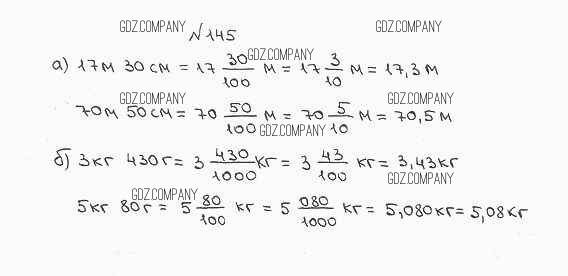 GDZ.COMPANY GDZ.COMPANY
№145
GDZ.COMPANY
а) 17м 30см = 17 30/100 м = 17 3/10 м = 17,3м
GDZ.COMPANY GDZ.COMPANY
70м 50см = 70 50/100 м = 70 5/10 м = 70,5м
GDZ.COMPANY
б) 3кг 430г = 3 430/1000 кг = 3 43/100 кг = 3,43кг
GDZ.COMPANY GDZ.COMPANY
5кг 80г = 5 80/100 кг = 5 080/1000 кг = 5,080кг = 5,08кг